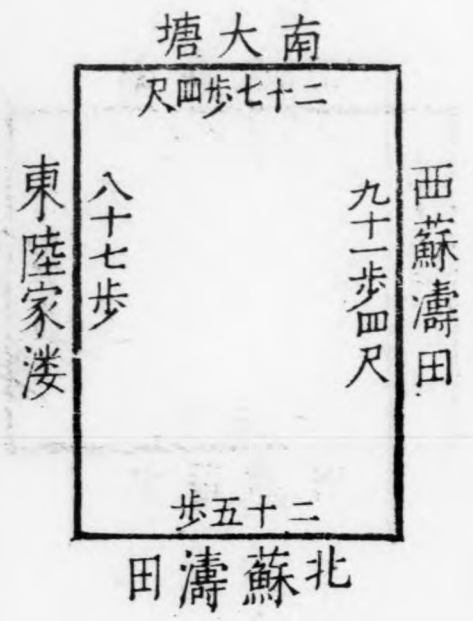 南大塘
二十七步四尺
西蘇濤田
九十一步四尺
八十七步
東陸家漊
二十五步
北蘇濤田